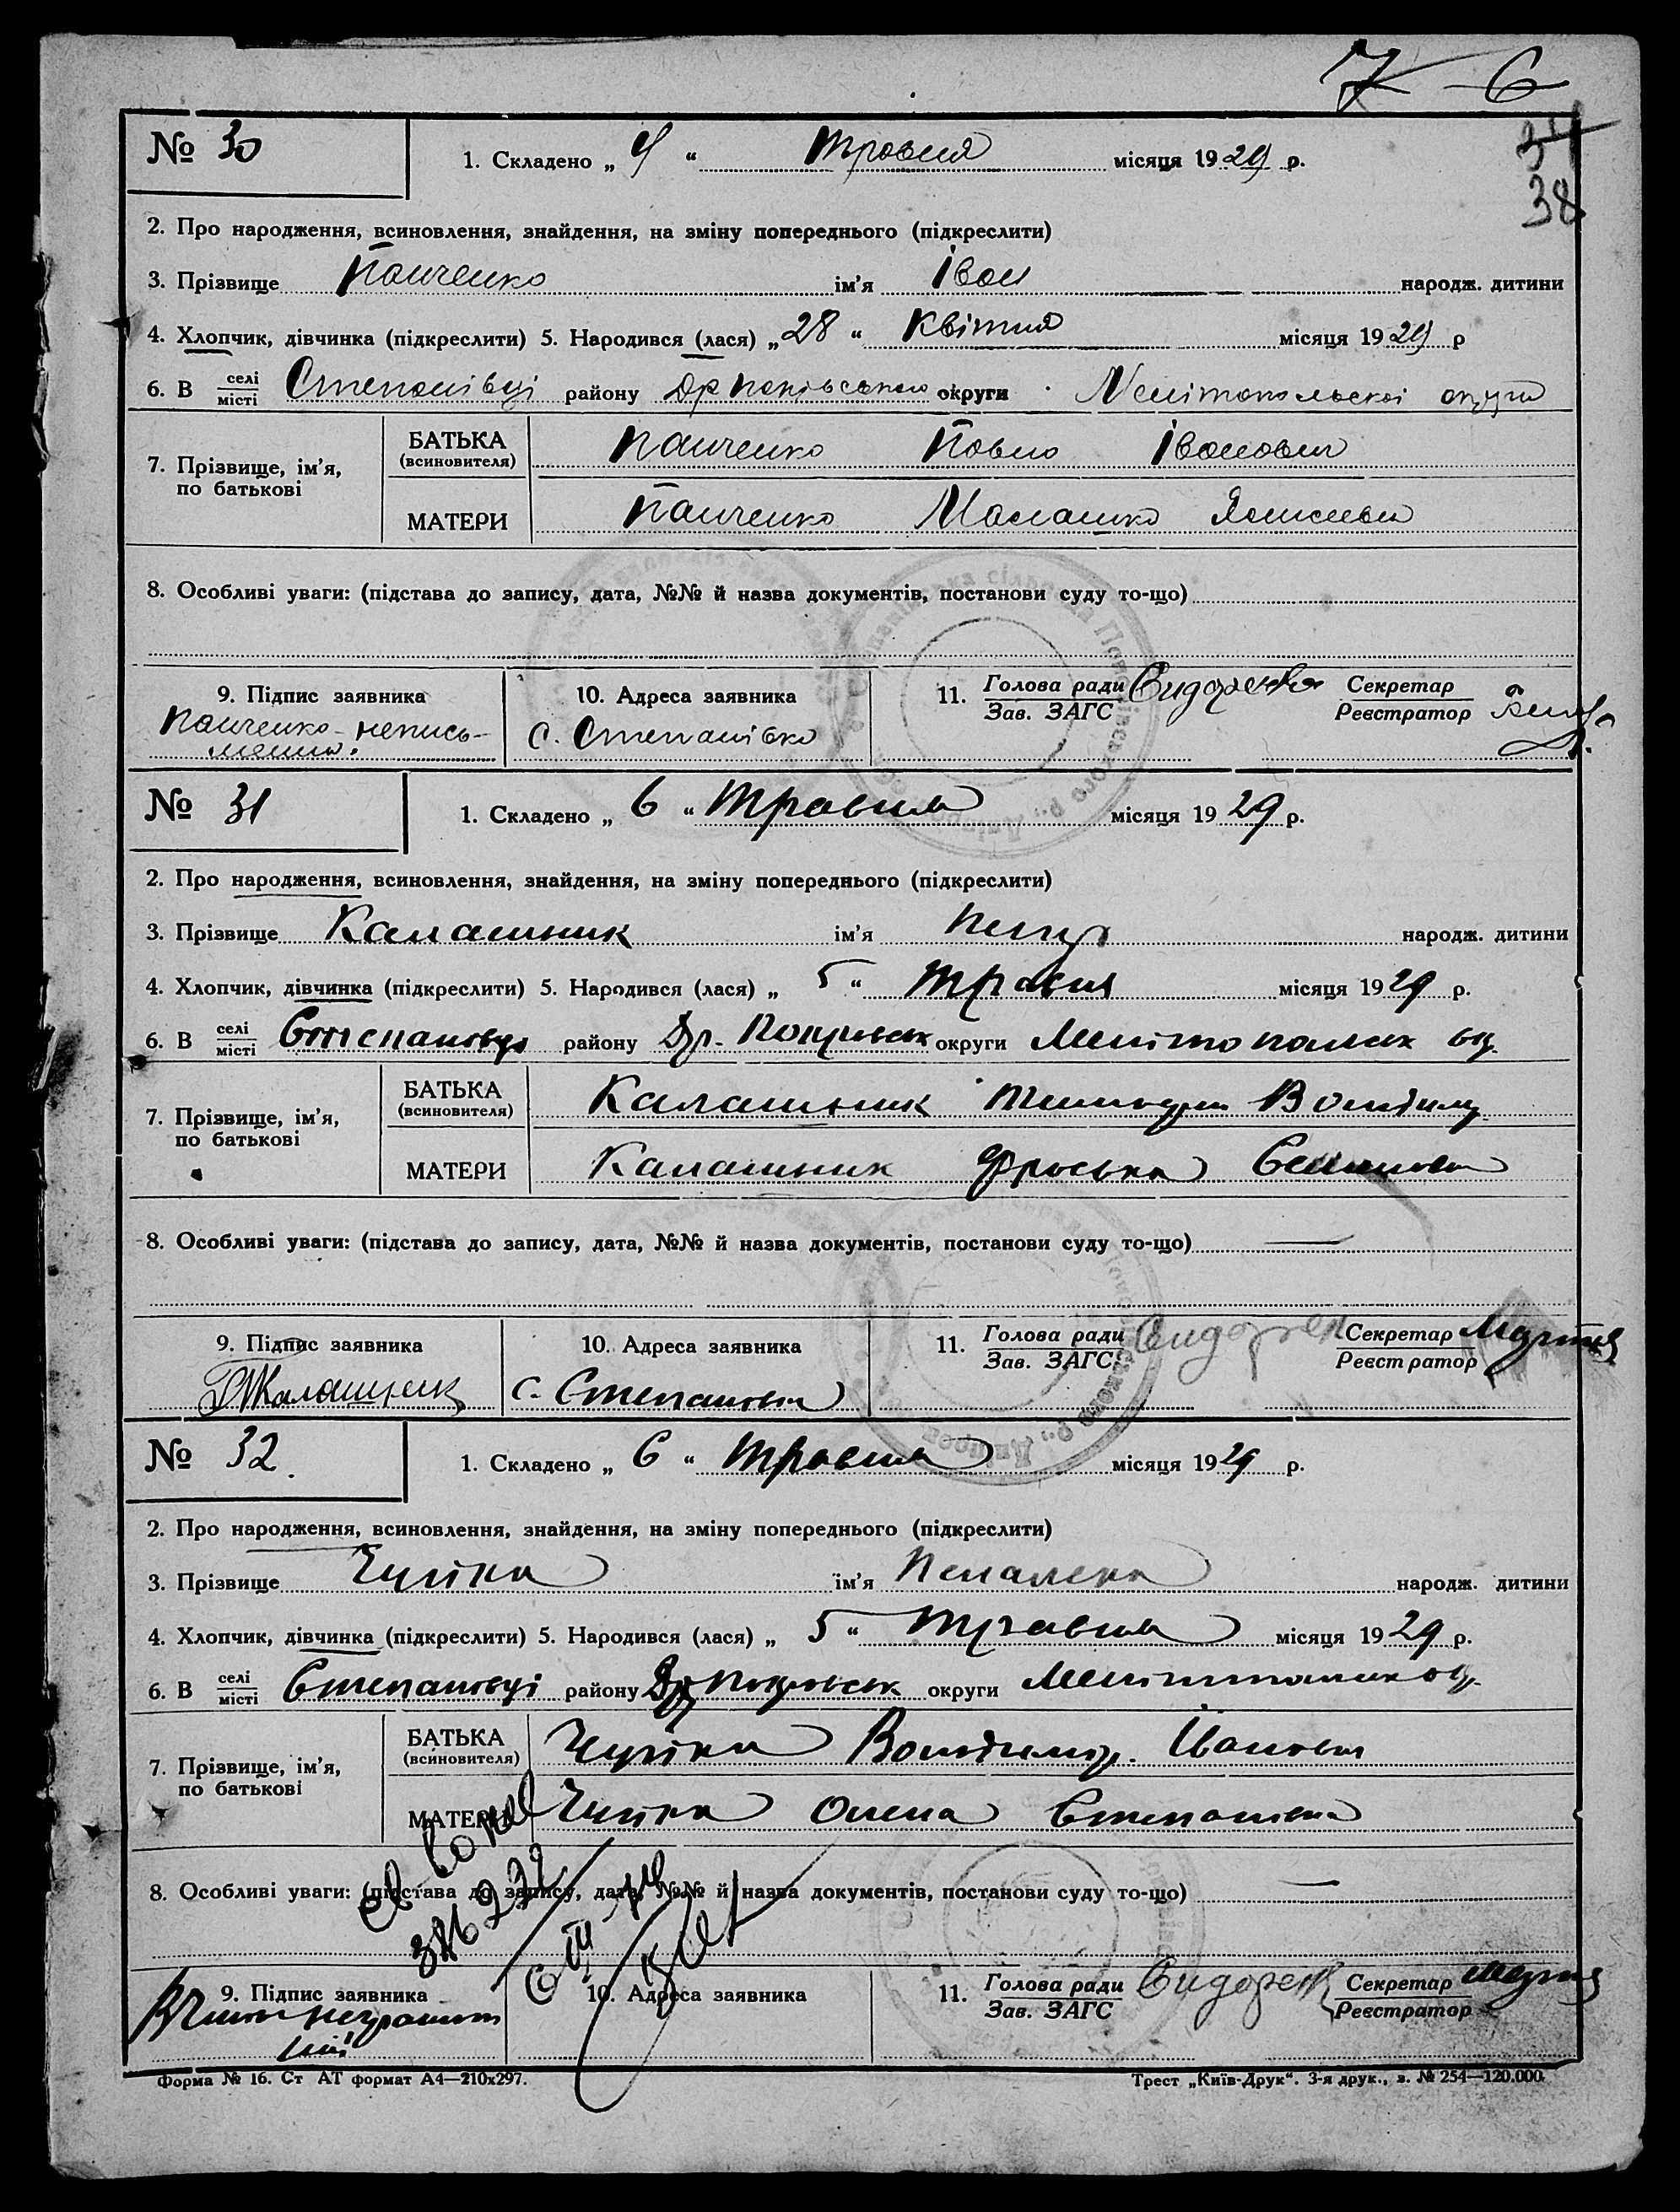 7 6
34
38
№ 30 1. Складено „ 4 “ травня місяця 1929 р.
2. Про народження, всиновлення, знайдення, на зміну попереднього (підкреслити)
3. Прізвище Панченко ім’я Іван народж. дитини
4. Хлопчик, дівчинка (підкреслити) 5. Народився (лася) „ 28 “ Квітня місяця 1929 р
6. В селі Степанівці району округи Мелітопольскої округи
місті
7. Прізвище, ім’я, по батькові БАТЬКА (всиновителя) Панченко Павло Іванович
МАТЕРИ Панченко Маланка
8. Особливі уваги: (підстава до запису, дата, №№ й назва документів, постанови суду то-що)
9. Підпис заявника 10. Адреса заявника 11. Голова ради Сидоренко Секретар
Зав. ЗАГС Реєстратор
Панченко - непись-
менна. с. Степанівка
№ 31 1. Складено „ 6 “ Травня місяця 1929 р.
2. Про народження, всиновлення, знайдення, на зміну попереднього (підкреслити)
3. Прізвище Калашник ім’я народж. дитини
4. Хлопчик, дівчинка (підкреслити) 5. Народився (лася) „ 5 “ Травня місяця 1929 р.
6. В селі Степановці району Др. Покровськ округи Мелітопольск окр.
місті
7. Прізвище, ім’я, по батькові БАТЬКА (всиновителя) Калашник
МАТЕРИ Калашник Фроська Семеновна
8. Особливі уваги: (підстава до запису, дата, №№ й назва документів, постанови суду то-що) —
9. Підпис заявника 10. Адреса заявника 11. Голова ради Сидорен Секретар
Зав. ЗАГС Реєстратор
Калашник с. Степановка
№ 32. 1. Складено „ 6 “ Травня місяця 1929 р.
2. Про народження, всиновлення, знайдення, на зміну попереднього (підкреслити)
3. Прізвище ім’я народж. дитини
4. Хлопчик, дівчинка (підкреслити) 5. Народився (лася) „ 5 “ Травня місяця 1929 р.
6. В селі Степановці району Др Покровськ округи
місті
7. Прізвище, ім’я, по батькові БАТЬКА (всиновителя) Володимир. Иванович
МАТЕРИ Олена Степановна
8. Особливі уваги: (підстава до запису, дата, №№ й назва документів, постанови суду то-що) —
9. Підпис заявника 10. Адреса заявника 11. Голова ради Сидорен Секретар
Зав. ЗАГС Реєстратор
Форма № 16. Ст АТ формат А4—210х297. Трест „Київ-Друк“. 3-я друк., з. № 254—120.000.